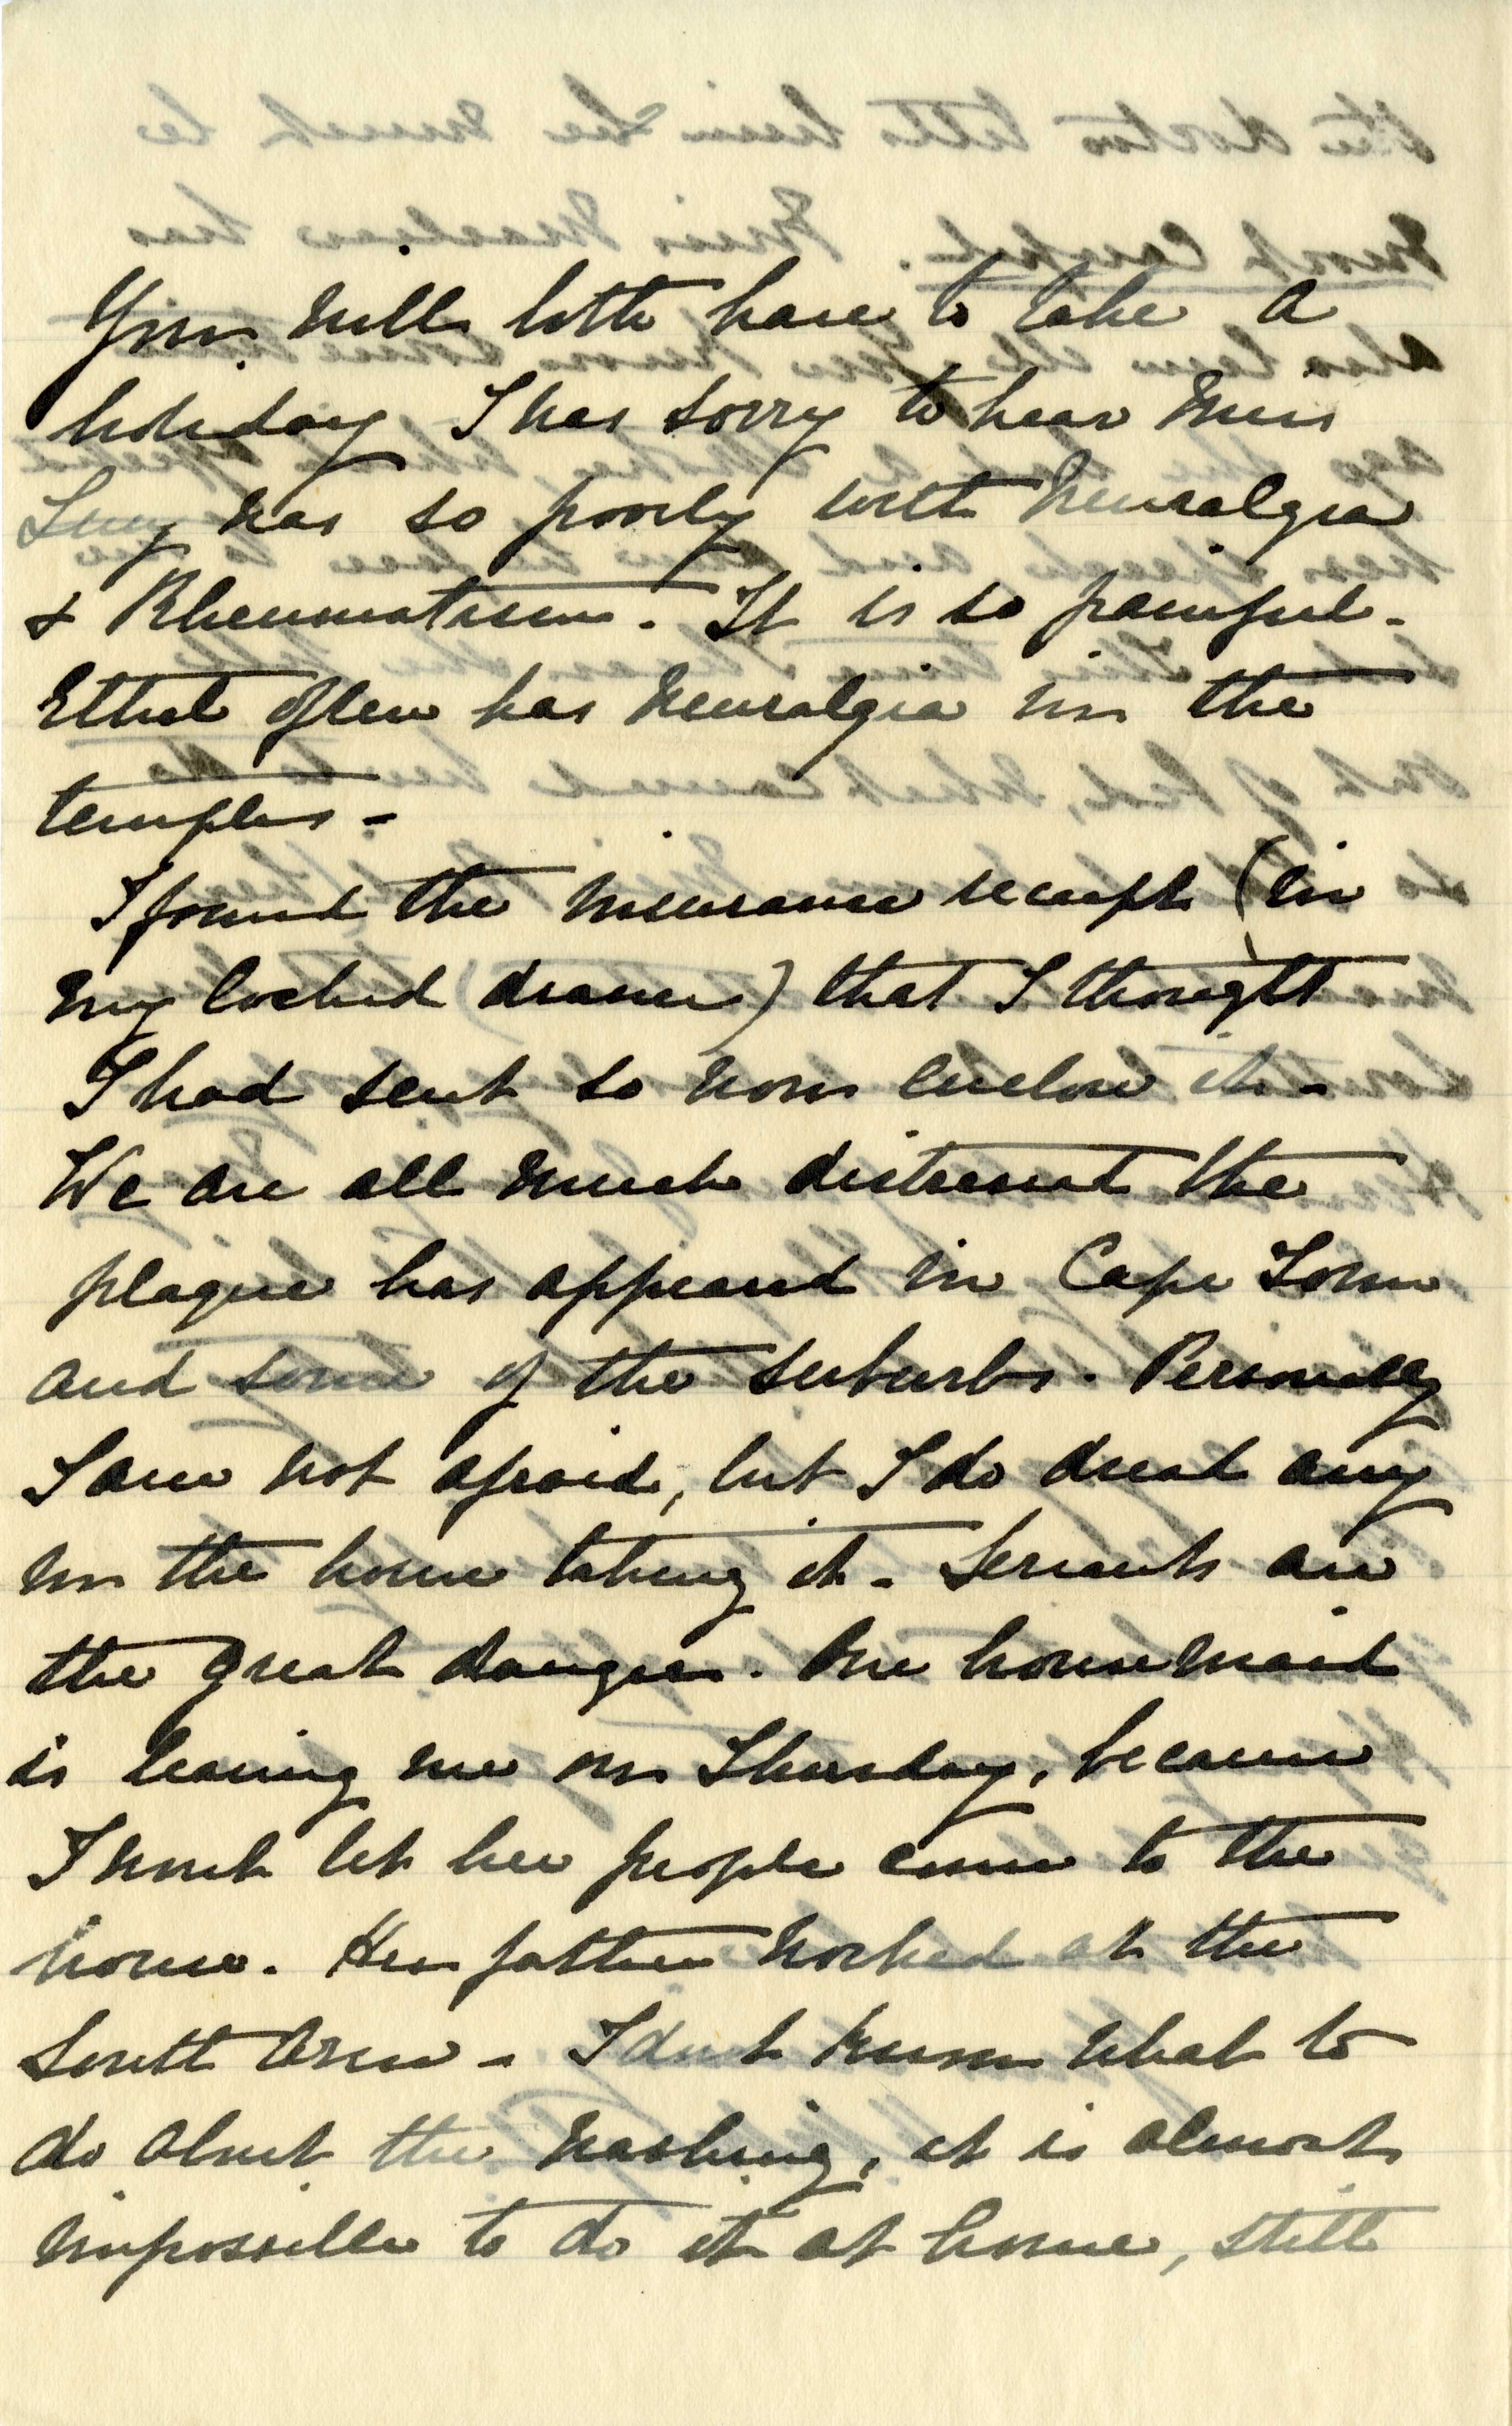 You will both have to take a
holiday I was sorry to hear Miss
Lucy was so poorly with Neuralgia
& Rheumatism. It is so painful.
Ethel often has Neuralgia in the
temples -
I found the insurance receipt (in
my locked drawer) that I thought
I had sent so now enclose it -
We are all much distressed the
plague has appeared in Cape Town
and some of the suburbs. Personally
I am not afraid, but I do dread any
in the house taking it - Servants are
the great danger. One housemaid
is leaving me on Thursday, because
I wont let her people come to the
house. Her father worked at the
South Arm - I dont know what to
do about the washing, it is almost
impossible to do it at home, still